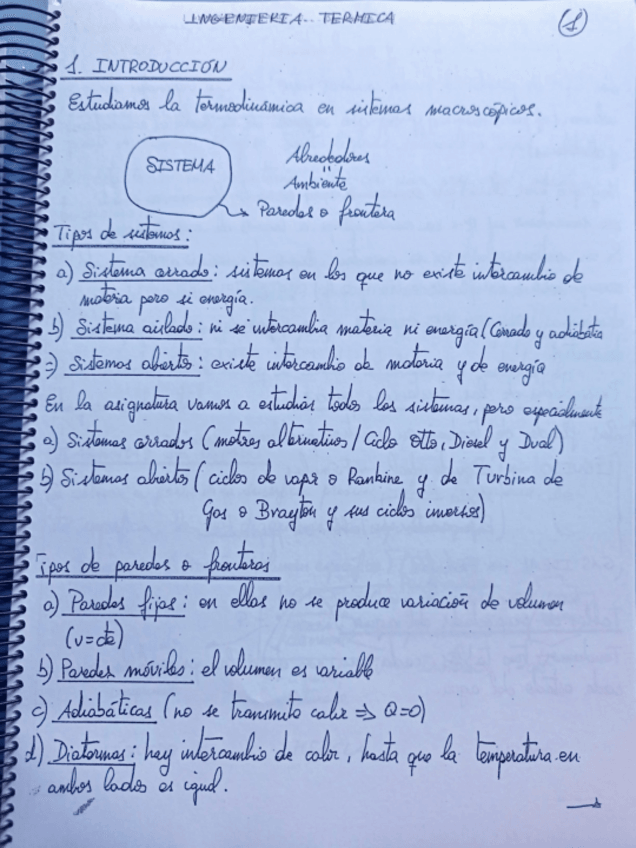 INGENIERIA TERMICA
1
1. INTRODUCCIÓN
Estudiamos la termodinámica en sistemas macroscópicos.
SISTEMA
Alrededores
"
Ambiente
Paredes o frontera
Tipos de sistemas:
a) Sistema cerrado: sistemas en los que no existe intercambio de
materia pero si energía.
b) Sistema aislado: ni se intercambia materia ni energía (Cerrado y adiabático
c) Sistemas abiertos: existe intercambio de materia y de energía
En la asignatura vamos a estudiar todos los sistemas, pero especialmente
a) Sistemas cerrados (motores alternativos / Ciclo Otto, Diesel y Dual)
b) Sistemas abiertos (ciclos de vapor o Rankine y de Turbina de
Gas o Brayton y sus ciclos inversos)
Tipos de paredes o fronteras
a) Paredes fijas: en ellas no se produce variación de volumen
(v=cte)
b) Paredes móviles: el volumen es variable
c) Adiabáticas (no se transmite calor ⇒ Q=0)
d) Diatermas: hay intercambio de calor, hasta que la temperatura en
ambos lados es igual.